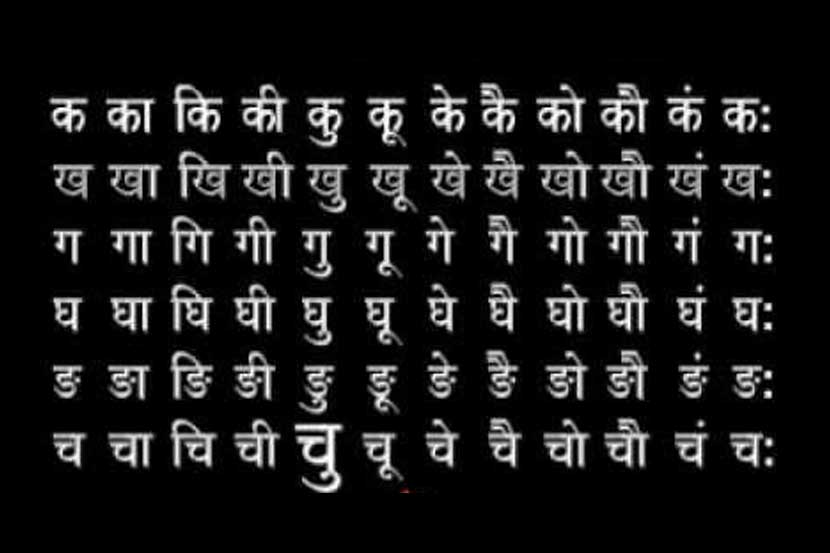 क का कि की कु कू के कै को कौ कं क:
ख खा खि खी खु खू खे खै खो खौ खं ख:
ग गा गि गी गु गू गे गै गो गौ गं ग:
घ घा घि घी घु घू घे घै घो घौ घं घ:
ङ ङा ङि ङी ङु ङू ङे ङै ङो ङौ ङं ङ:
च चा चि ची चु चू चे चै चो चौ चं च: